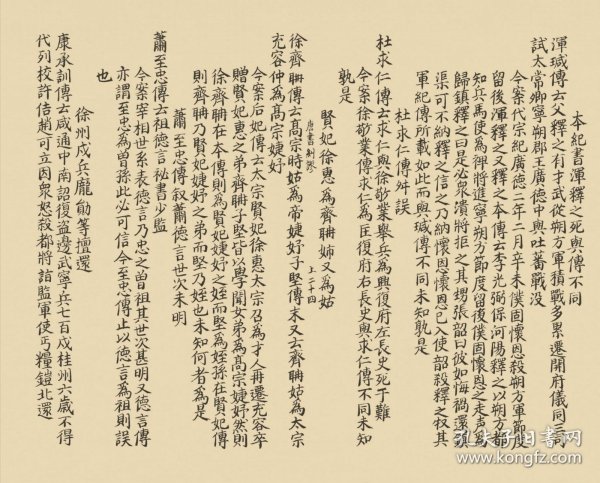 本紀書渾釋之死與傳不同
渾瑊傳云父釋之有才武從朔方軍積戰多累遷開府儀同三司
試太常卿寧朔郡王廣德中與吐蕃戰没
今案代宗紀廣德二年二月辛未僕固懷恩殺朔方軍節度
留後渾釋之又釋之本傳云李光弼保河陽釋之以朔方都
知兵馬使為裨將進寧朔方節度留後僕固懷恩之走聲為
歸鎮釋之曰是必衆潰將拒之其甥張韶曰彼如悔禍還鎮
渠可不納釋之信之乃納懷恩懷恩已入使韶殺釋之收其
軍紀傳所載如此而與瑊傳不同未知孰是
杜求仁傳舛誤
杜求仁傳云求仁與徐敬業舉兵為興復府左長史死于難
今案徐敬業傳求仁為匡復府右長史與求仁傳不同未知
孰是
賢妃徐惠為齊聃姊又為姑
唐書糾繆 上二十四
徐齊聃傳云高宗時姑為帝婕妤子堅傳末又云齊聃姑為太宗
充容仲為高宗婕妤
今案后妃傳云太宗賢妃徐惠太宗召為才人再遷充容卒
贈賢妃惠之弟齊聃子堅皆以學聞女弟為高宗婕妤然則
徐齊聃在本傳則為賢妃婕妤之姪而堅為姪孫在賢妃傳
則齊聃乃賢妃婕妤之弟而堅乃姪也未知何者為是
蕭至忠傳叙蕭德言世次未明
蕭至忠傳云祖德言秘書少監
今案宰相世系表德言乃忠之曾祖其世次甚明又德言傳
亦謂至忠為曾孫此必可信今至忠傳止以德言為祖則誤
也
徐州戍兵龐勛等擅還
康承訓傳云咸通中南詔復盜邊武寧兵七百戍桂州六歲不得
代列校許佶趙可立因衆怒殺都將詣監軍使丐糧鎧北還
孔夫子旧书网
www.kongfz.com